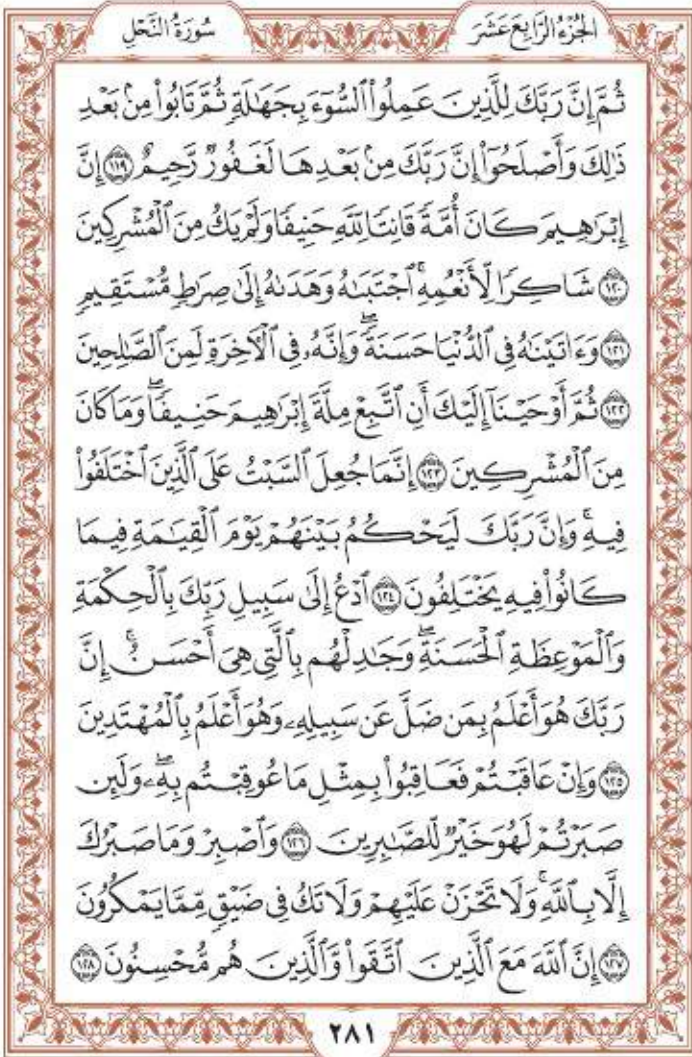 الجُزْءُ الرَّابِعَ عَشَرَ
سُورَةُ النَّحْلِ
ثُمَّ إِنَّ رَبَّكَ لِلَّذِينَ عَمِلُوا۟ ٱلسُّوٓءَ بِجَهَٰلَةٍ ثُمَّ تَابُوا۟ مِنۢ بَعْدِ
ذَٰلِكَ وَأَصْلَحُوٓا۟ إِنَّ رَبَّكَ مِنۢ بَعْدِهَا لَغَفُورٌ رَّحِيمٌ ۝١١٩ إِنَّ
إِبْرَٰهِيمَ كَانَ أُمَّةً قَانِتًا لِّلَّهِ حَنِيفًا وَلَمْ يَكُ مِنَ ٱلْمُشْرِكِينَ
۝١٢٠ شَاكِرًا لِّأَنْعُمِهِ ۚ ٱجْتَبَىٰهُ وَهَدَىٰهُ إِلَىٰ صِرَٰطٍ مُّسْتَقِيمٍ
۝١٢١ وَءَاتَيْنَٰهُ فِى ٱلدُّنْيَا حَسَنَةً ۖ وَإِنَّهُۥ فِى ٱلْءَاخِرَةِ لَمِنَ ٱلصَّٰلِحِينَ
۝١٢٢ ثُمَّ أَوْحَيْنَآ إِلَيْكَ أَنِ ٱتَّبِعْ مِلَّةَ إِبْرَٰهِيمَ حَنِيفًا ۖ وَمَا كَانَ
مِنَ ٱلْمُشْرِكِينَ ۝١٢٣ إِنَّمَا جُعِلَ ٱلسَّبْتُ عَلَى ٱلَّذِينَ ٱخْتَلَفُوا۟
فِيهِ ۚ وَإِنَّ رَبَّكَ لَيَحْكُمُ بَيْنَهُمْ يَوْمَ ٱلْقِيَٰمَةِ فِيمَا
كَانُوا۟ فِيهِ يَخْتَلِفُونَ ۝١٢٤ ٱدْعُ إِلَىٰ سَبِيلِ رَبِّكَ بِٱلْحِكْمَةِ
وَٱلْمَوْعِظَةِ ٱلْحَسَنَةِ ۖ وَجَٰدِلْهُم بِٱلَّتِى هِىَ أَحْسَنُ ۚ إِنَّ
رَبَّكَ هُوَ أَعْلَمُ بِمَن ضَلَّ عَن سَبِيلِهِۦ وَهُوَ أَعْلَمُ بِٱلْمُهْتَدِينَ
۝١٢٥ وَإِنْ عَاقَبْتُمْ فَعَاقِبُوا۟ بِمِثْلِ مَا عُوقِبْتُم بِهِۦ ۖ وَلَئِن
صَبَرْتُمْ لَهُوَ خَيْرٌ لِّلصَّٰبِرِينَ ۝١٢٦ وَٱصْبِرْ وَمَا صَبْرُكَ
إِلَّا بِٱللَّهِ ۚ وَلَا تَحْزَنْ عَلَيْهِمْ وَلَا تَكُ فِى ضَيْقٍ مِّمَّا يَمْكُرُونَ
۝١٢٧ إِنَّ ٱللَّهَ مَعَ ٱلَّذِينَ ٱتَّقَوا۟ وَّٱلَّذِينَ هُم مُّحْسِنُونَ ۝١٢٨
٢٨١